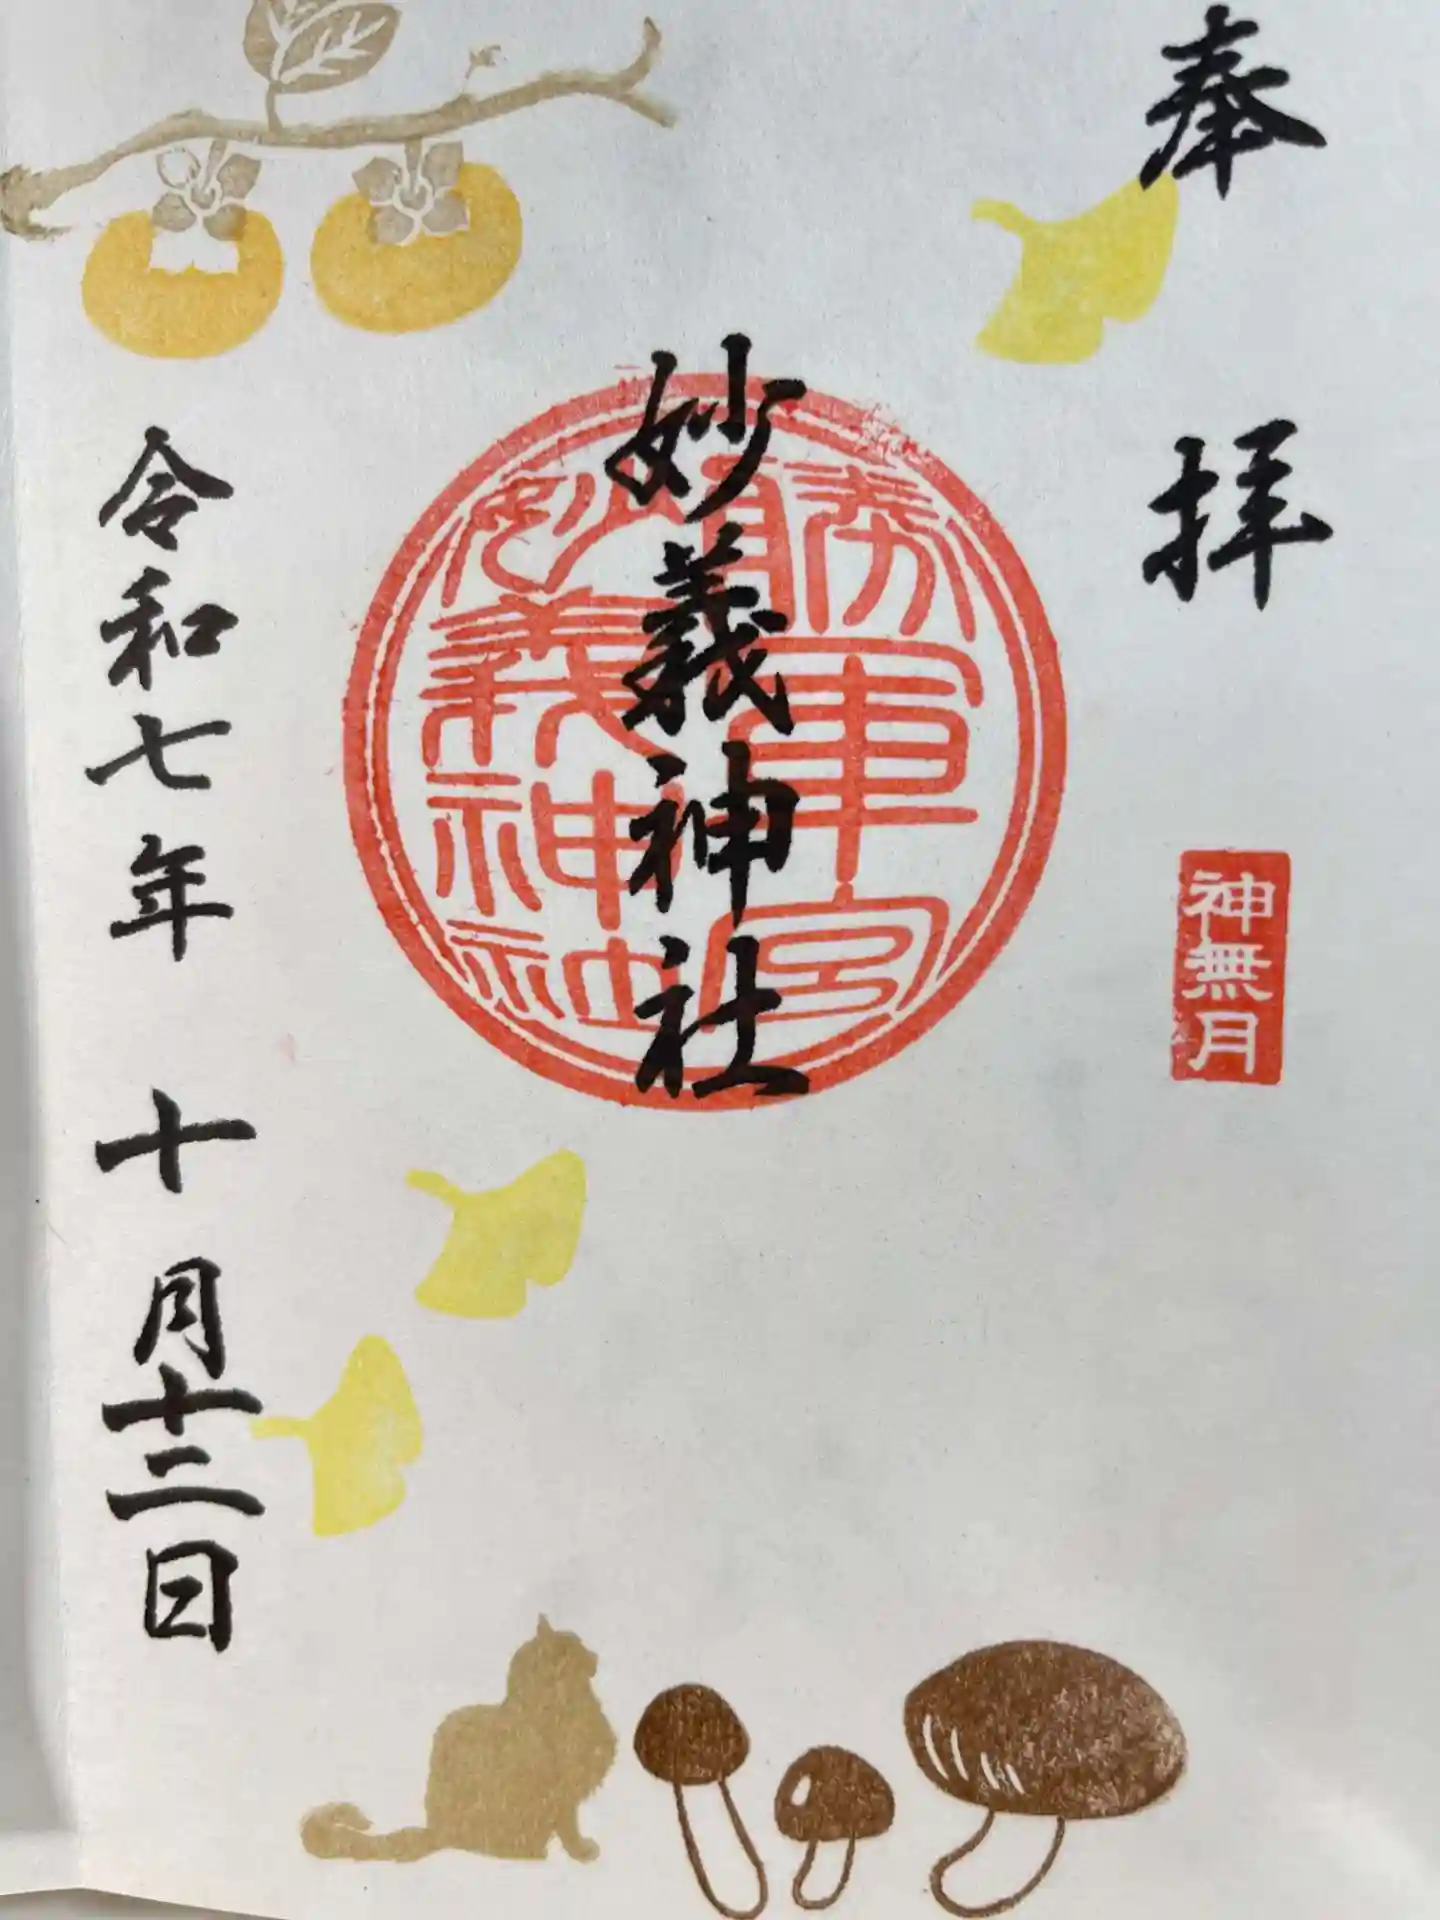 奉拝
神無月
妙義神社
令和七年 十月十二日